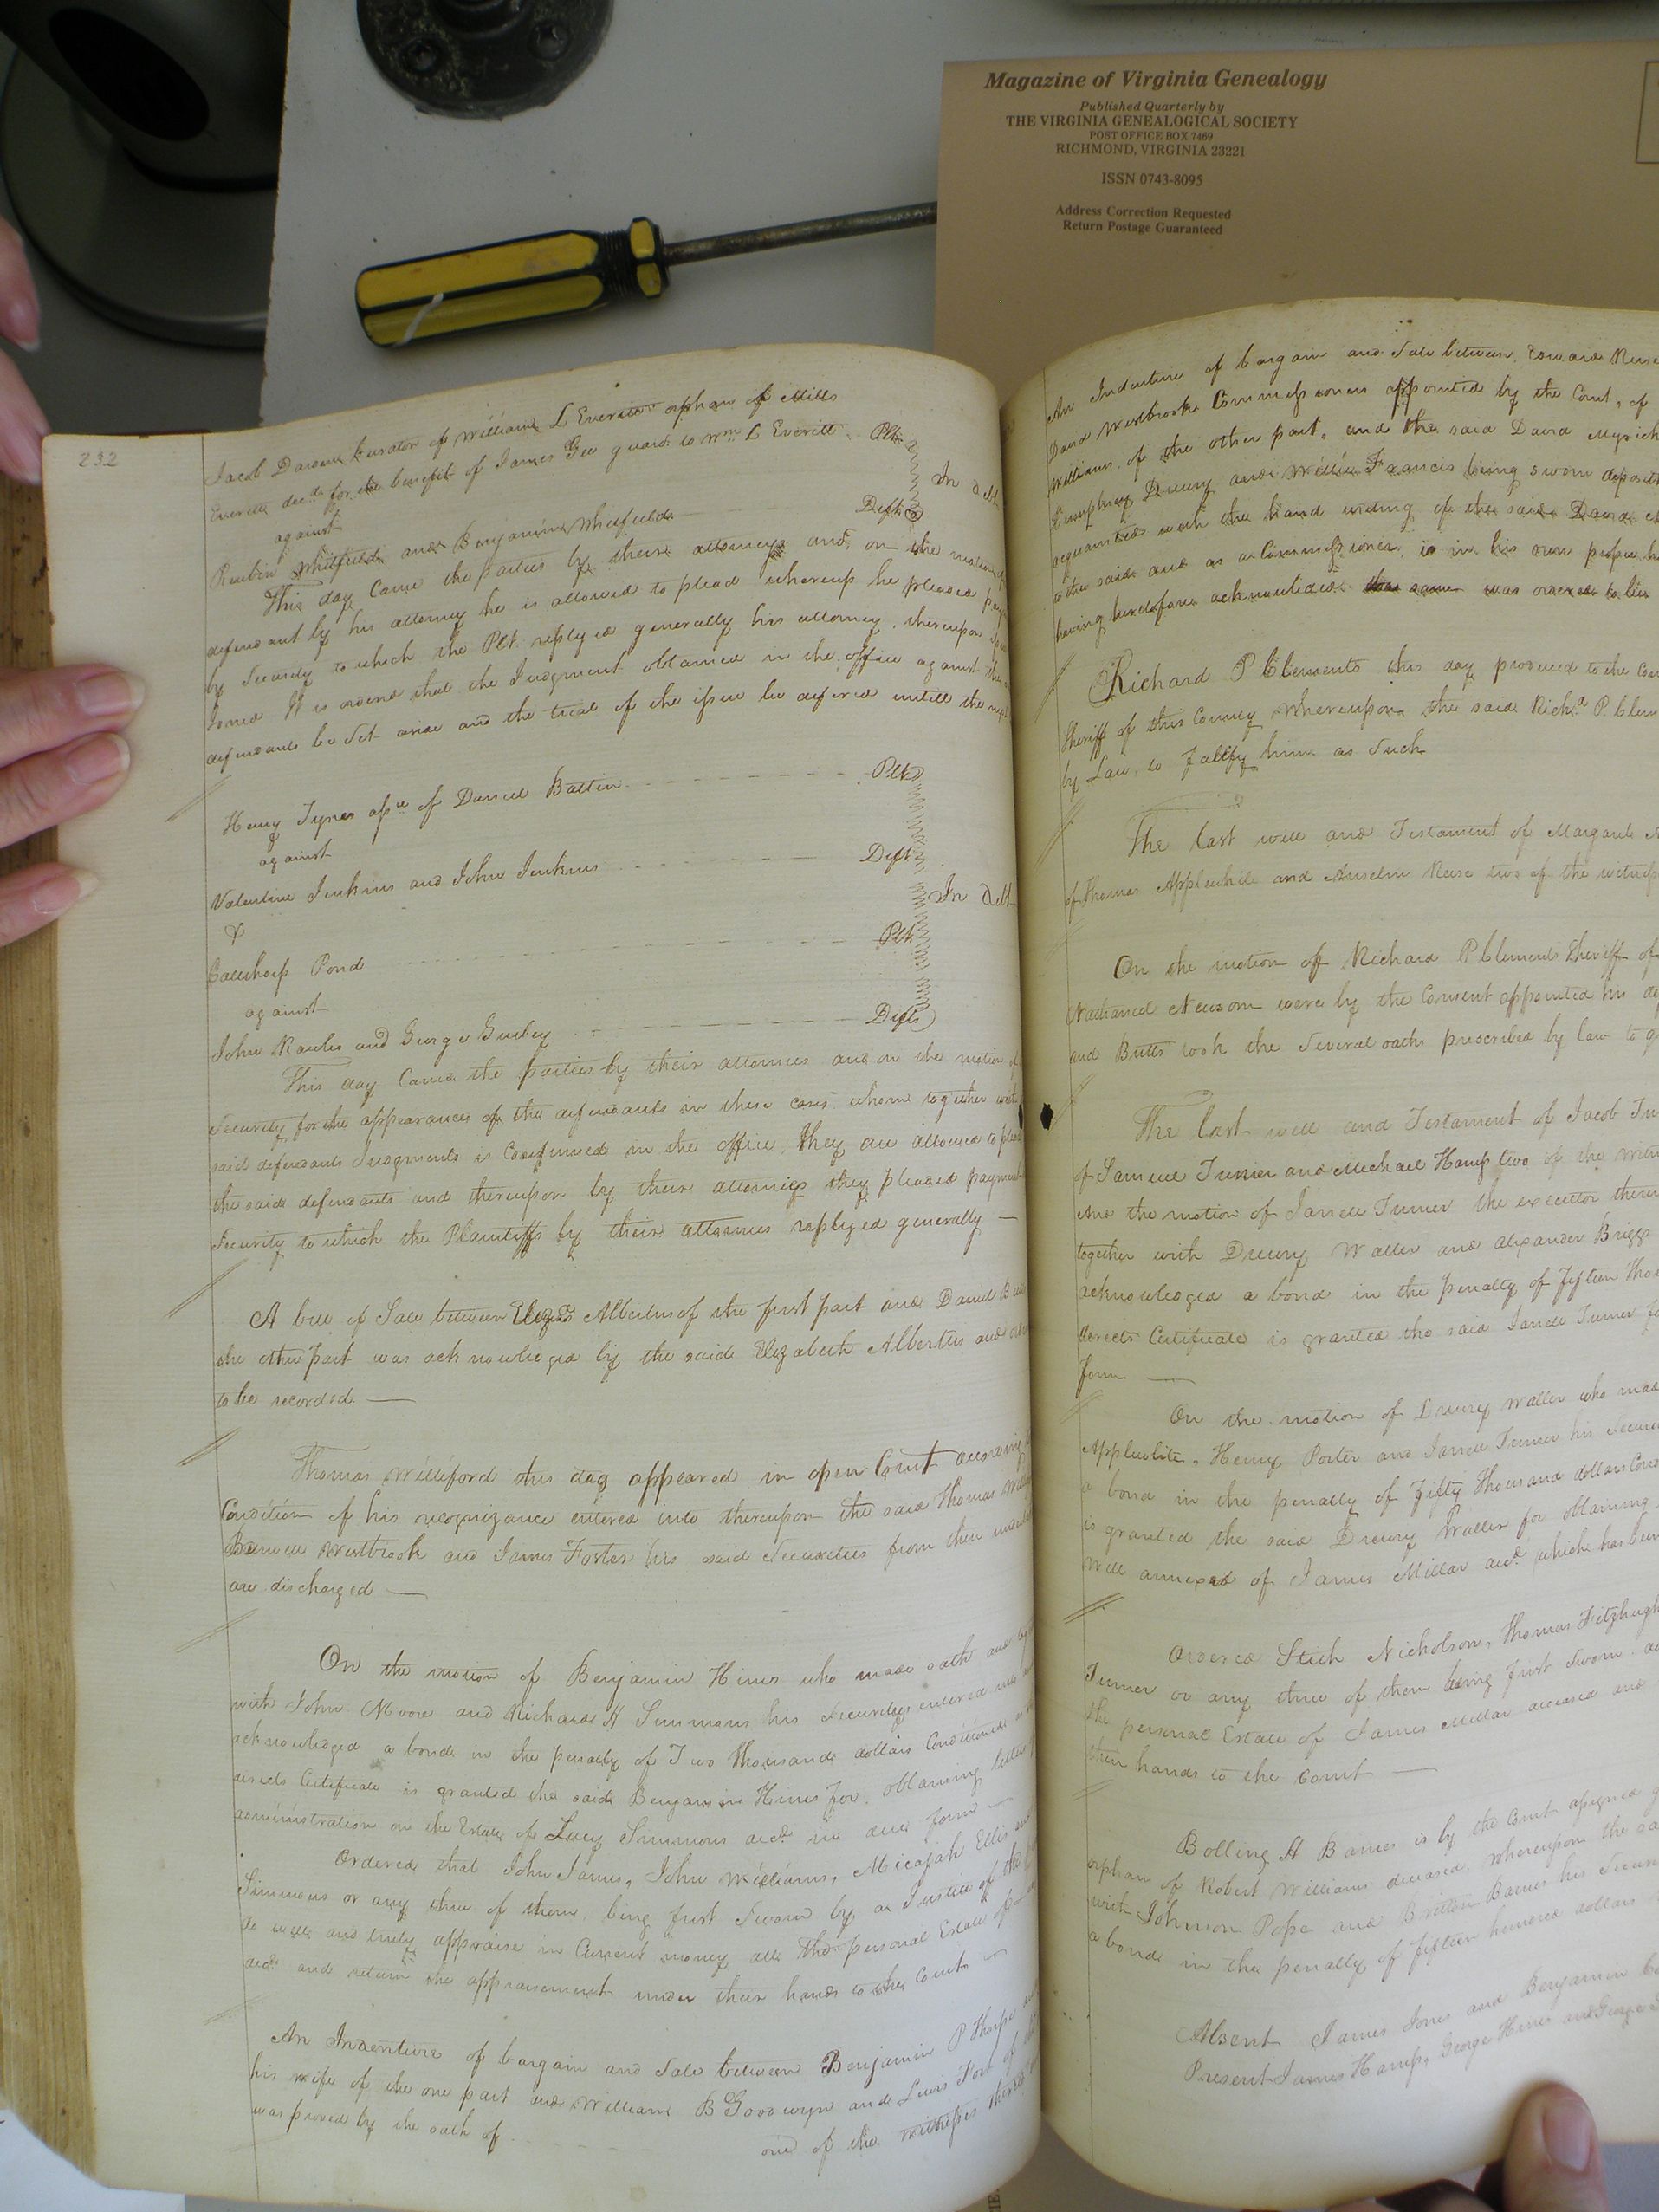 Magazine of Virginia Genealogy
Published Quarterly by
THE VIRGINIA GENEALOGICAL SOCIETY
POST OFFICE BOX 7469
RICHMOND, VIRGINIA 23221
ISSN 0743-8095
Address Correction Requested
Return Postage Guaranteed
232
Jacob Curator of William L Everitt orphan of Mills
Everitt decd. for the benefit of James Gee guard. to Wm L Everitt Plt
In Debt
against
Reubin Whitfield and Benjamin Whitfield Defts
This day came the parties by their attorneys and on the motion
defendant by his attorney he is allowed to plead whereup he pleaded
by Security to which the Plt replyed generally his attorney, thereupon
Joined It is orderd that the Judgment obtained in the office against the
defendants be Set aside and the trial of the issue be defered untill the
Henry Tynes asse of Daniel Battin Plt
against
Valentine Jenkins and John Jenkins Deft
In Debt
&
Pond Plt
against
John Rawles and George Gurley Defts
This day Came the parties by their attornies and on the motion of
Security for the appearances of the defendants in these cases whom together with
said defendants Judgments is Confirmed in the office, they are allowed to
the said defendants and thereupon by their attornies they pleaded payment
Security to which the Plaintiffs by their attornies replyed generally —
A bill of Sale between Albertus of the first part and Daniel
the other part was acknowledged by the said Elizabeth Albertus and
to be recorded —
Thomas Williford this day appeared in open Court according
Condition of his recognizance entered into thereupon the said Thomas
Westbrook and James Foster his said Securities from their
are discharged —
On the motion of Benjamin Hines who made oath and
with John Moore and Richard H Simmons his Securitys entered into
acknowledged a bond in the penalty of Two thousand dollars Conditioned
directs Certificate is granted the said Benjamin Hines for obtaining letters
administration on the Estate of Lucy Simmons decd. in due form —
Ordered that John James, John Williams, Micajah Ellis
Simmons or any three of them, being first Sworn by a Justice of the
do well and truly appraise in Current money all the personal Estate
decd. and return the appraisement under their hands to the Court —
An Indenture of bargain and Sale between Benjamin P Thorpe
his wife of the one part and William B Goodwyn and Lewis Fort of
was proved by the oath of one of the witnesses
An Indenture of bargain and Sale between, Edward
David Westbrook Commissioners appointed by the Court, of
Williams, of the other part, and the said David Myrick
Humphrey Drewry and Willie Francis being sworn
acquainted with the hand writing of the said David
to the said and as a Commissioner, is in his own proper
having heretofore acknowledged the same was ordered to lie
Richard P Clements this day produced to the
Sheriff of this County Whereupon the said Richd P. Clem
by Law, to him as Such
The last will and Testament of Margaret
of Thomas Applewhite and Anselm two of the witness
On the motion of Richard P Clements Sheriff of
Nathaniel Newsom were by the Consent appointed his
and Butts took the Several oaths prescribed by law to
The last will and Testament of Jacob
of Samuel Turner and Michael Hamp two of the
And the motion of Jarrell Turner the executor there
together with Drewry Waller and Alexander Briggs
acknowledged a bond in the penalty of fifteen
directs Certificate is granted the said Jarrell Turner
form —
On the motion of Drewry Waller who
Applewhite, Henry Porter and Jarrell Turner his
a bond in the penalty of fifty thousand dollars
is granted the said Drewry Waller for obtaining
Will annexed of James Millar decd. which has been
Ordered Stith Nicholson, Thomas Fitzhugh
Turner or any three of them being first Sworn
the personal Estate of James Millar deceased and
their hands to the Court —
Bolling H Barnes is by the Court assigned
orphan of Robert Williams deceased whereupon the
with Johnson Pope and Britton Barnes his
a bond in the penalty of fifteen hundred dollars
Absent James Jones and Benjamin
Present James Hamp, George Hines and George